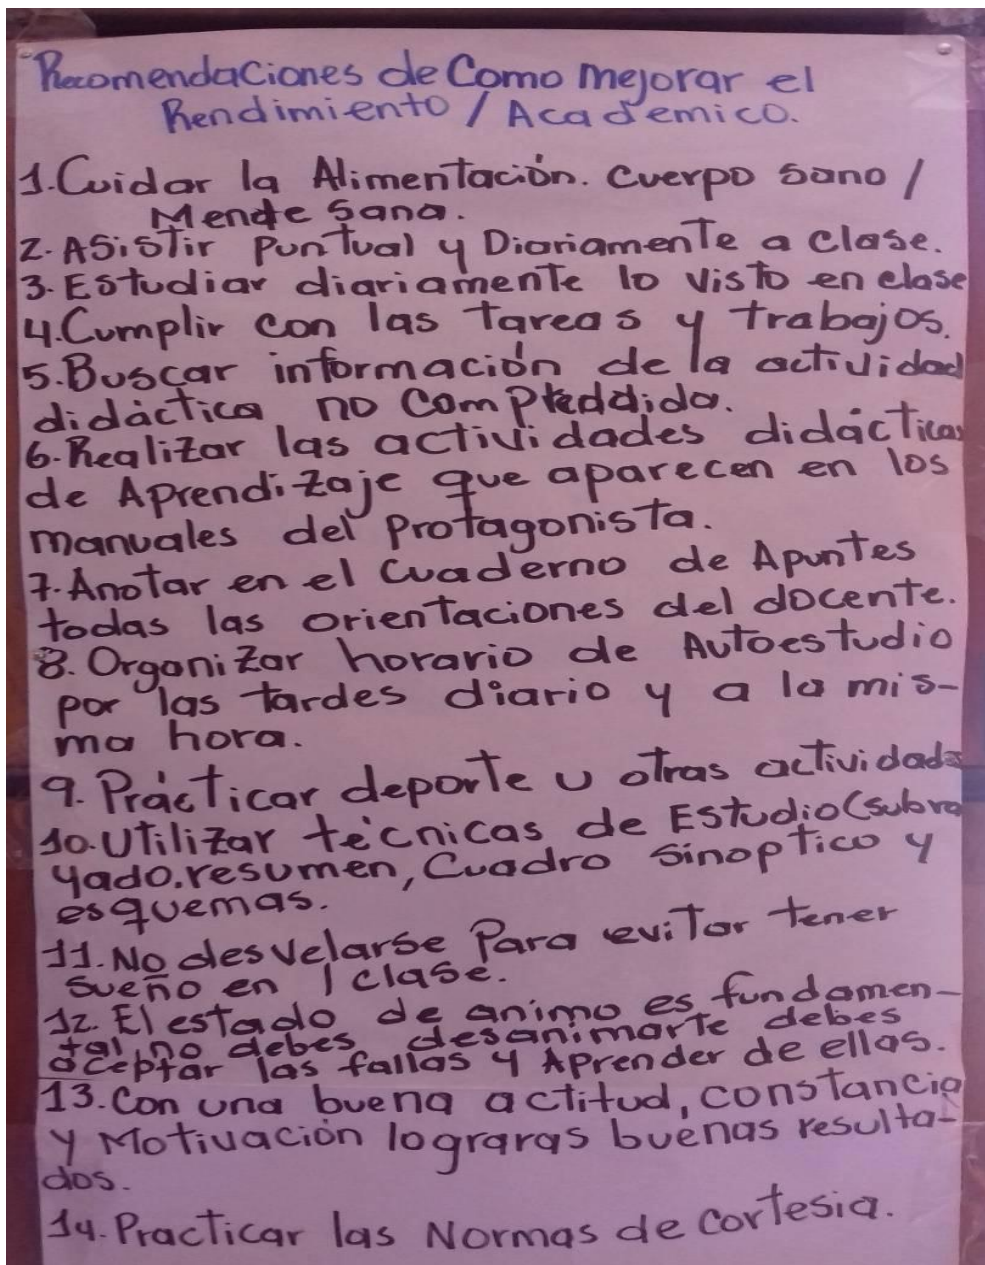 Recomendaciones de Como mejorar el
Rendimiento / Academico.
1. Cuidar la Alimentación. Cuerpo Sano /
Mende Sana.
2. Asistir Puntual y Diariamente a clase.
3. Estudiar diariamente lo visto en clase
4. Cumplir con las tareas y trabajos.
5. Buscar información de la actividad
didáctica no
6. Realizar las actividades didácticas
de Aprendizaje que aparecen en los
manuales del Protagonista.
7. Anotar en el Cuaderno de Apuntes
todas las orientaciones del docente.
8. Organizar horario de Autoestudio
por las tardes diario y a la mis-
ma hora.
9. Prácticar deporte u otras actividads
10. Utilizar técnicas de Estudio (subra
yado. resumen, Cuadro Sinoptico y
esquemas.
11. No desvelarse Para evitar tener
sueño en / clase.
12. El estado de animo es fundamen-
tal, no debes desanimarte debes
aceptar las fallas y Aprender de ellas.
13. Con una buena actitud, constancia
y Motivación lograras buenas resulta-
dos.
14. Practicar las Normas de Cortesia.